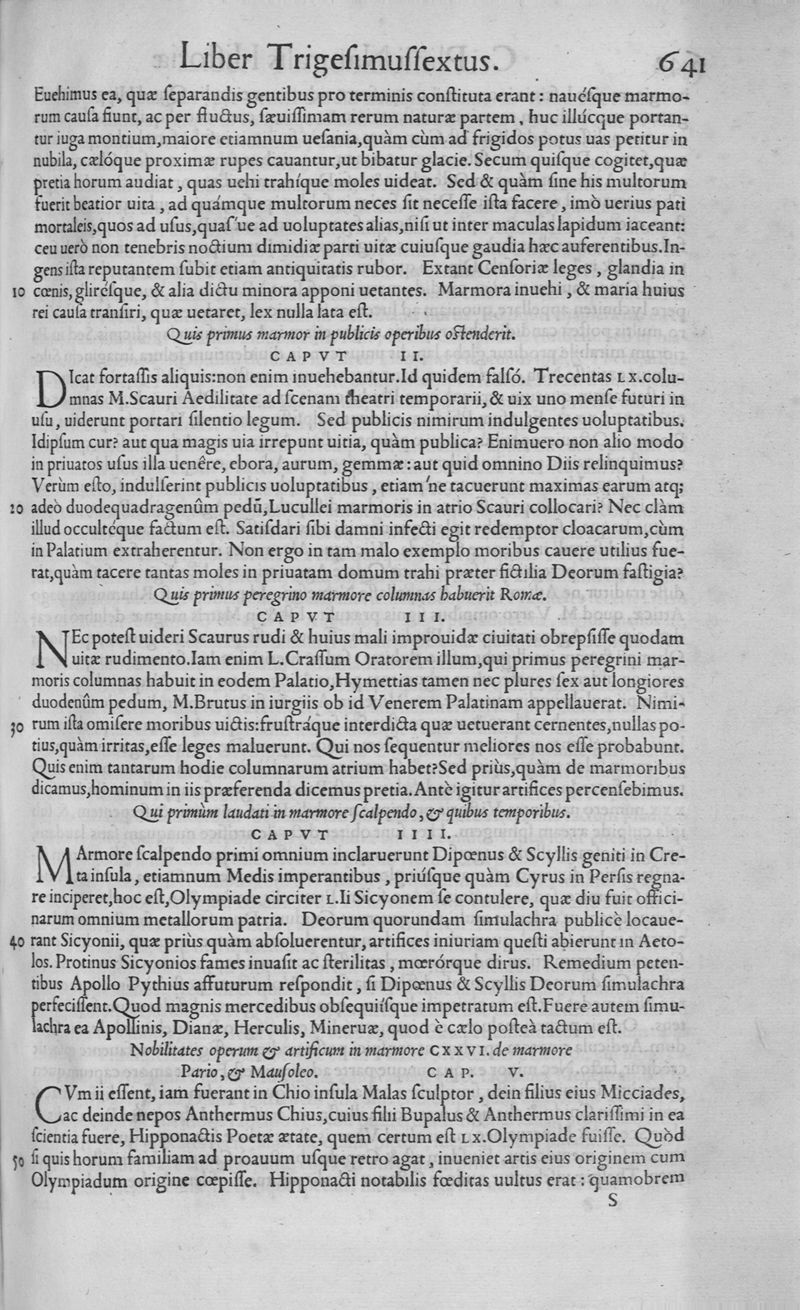 Liber Trigeſimuſſextus. 641
Euehimus ea, quæ ſeparandis gentibus pro terminis conſtituta erant: nauéſque marmo-
rum cauſa fiunt, ac per fluctus, ſæuiſſimam rerum naturæ partem, huc illúcque portan-
tur iuga montium,maiore etiamnum ueſania,quàm cùm ad frigidos potus uas petitur in
nubila, cælóque proximæ rupes cauantur,ut bibatur glacie. Secum quiſque cogitet,quæ
pretia horum audiat, quas uehi trahíque moles uideat. Sed & quàm ſine his multorum
fuerit beatior uita, ad quámque multorum neces ſit neceſſe iſta facere, imò uerius pati
mortaleis,quos ad uſus,quaſ've ad uoluptates alias,niſi ut inter maculas lapidum iaceant:
ceu uerò non tenebris noctium dimidiæ parti uitæ cuiuſque gaudia hæc auferentibus.In-
gens iſta reputantem ſubit etiam antiquitatis rubor. Extant Cenſoriæ leges, glandia in
10 cœnis,gliréſque, & alia dictu minora apponi uetantes. Marmora inuehi, & maria huius
rei cauſa tranſiri, quæ uetaret, lex nulla lata eſt.
Quis primus marmor in publicis operibus oſtenderit.
CAPVT II.
DIcat fortaſſis aliquis:non enim inuehebantur.Id quidem falſó. Trecentas LX.colu-
mnas M.Scauri Aedilitate ad ſcenam theatri temporarii, & uix uno menſe futuri in
uſu, uiderunt portari ſilentio legum. Sed publicis nimirum indulgentes uoluptatibus.
Idipſum cur? aut qua magis uia irrepunt uitia, quàm publica? Enimuero non alio modo
in priuatos uſus illa uenêre, ebora, aurum, gemmæ: aut quid omnino Diis relinquimus?
Verùm eſto, indulſerint publicis uoluptatibus, etiam'ne tacuerunt maximas earum atq;
20 adeò duodequadragenûm pedũ,Lucullei marmoris in atrio Scauri collocari? Nec clàm
illud occultéque factum eſt. Satiſdari ſibi damni infecti egit redemptor cloacarum,cùm
in Palatium extraherentur. Non ergo in tam malo exemplo moribus cauere utilius fue-
rat,quàm tacere tantas moles in priuatam domum trahi præter fictilia Deorum faſtigia?
Quis primus peregrino marmore columnas habuerit Romæ.
CAPVT III.
NEc poteſt uideri Scaurus rudi & huius mali improuidæ ciuitati obrepſiſſe quodam
uitæ rudimento.Iam enim L.Craſſum Oratorem illum,qui primus peregrini mar-
moris columnas habuit in eodem Palatio,Hymettias tamen nec plures ſex aut longiores
duodenûm pedum, M.Brutus in iurgiis ob id Venerem Palatinam appellauerat. Nimi-
30 rum iſta omiſere moribus uictis:fruſtráque interdicta quæ uetuerant cernentes,nullas po-
tius,quàm irritas,eſſe leges maluerunt. Qui nos ſequentur meliores nos eſſe probabunt.
Quis enim tantarum hodie columnarum atrium habet?Sed priùs,quàm de marmoribus
dicamus,hominum in iis præferenda dicemus pretia.Antè igitur artifices percenſebimus.
Qui primùm laudati in marmore ſcalpendo, & quibus temporibus.
CAPVT IIII.
MArmore ſcalpendo primi omnium inclaruerunt Dipœnus & Scyllis geniti in Cre-
ta inſula, etiamnum Medis imperantibus, priúſque quàm Cyrus in Perſis regna-
re inciperet,hoc eſt,Olympiade circiter L.Ii Sicyonem ſe contulere, quæ diu fuit offici-
narum omnium metallorum patria. Deorum quorundam ſimulachra publicè locaue-
40 rant Sicyonii, quæ priùs quàm abſoluerentur, artifices iniuriam queſti abierunt in Aeto-
los. Protinus Sicyonios fames inuaſit ac ſterilitas, mœrórque dirus. Remedium peten-
tibus Apollo Pythius affuturum reſpondit, ſi Dipœnus & Scyllis Deorum ſimulachra
perfeciſſent.Quod magnis mercedibus obſequiíſque impetratum eſt.Fuere autem ſimu-
lachra ea Apollinis, Dianæ, Herculis, Mineruæ, quod è cælo poſteà tactum eſt.
Nobilitates operum & artificum in marmore CXXVI. de marmore
Pario, & Mauſoleo. CAP. V.
CVm ii eſſent, iam fuerant in Chio inſula Malas ſculptor, dein filius eius Micciades,
ac deinde nepos Anthermus Chius,cuius filii Bupalus & Anthermus clariſſimi in ea
ſcientia fuere, Hipponactis Poetæ ætate, quem certum eſt LX.Olympiade fuiſſe. Quòd
50 ſi quis horum familiam ad proauum uſque retro agat, inueniet artis eius originem cum
Olympiadum origine cœpiſſe. Hipponacti notabilis fœditas uultus erat: quamobrem
S